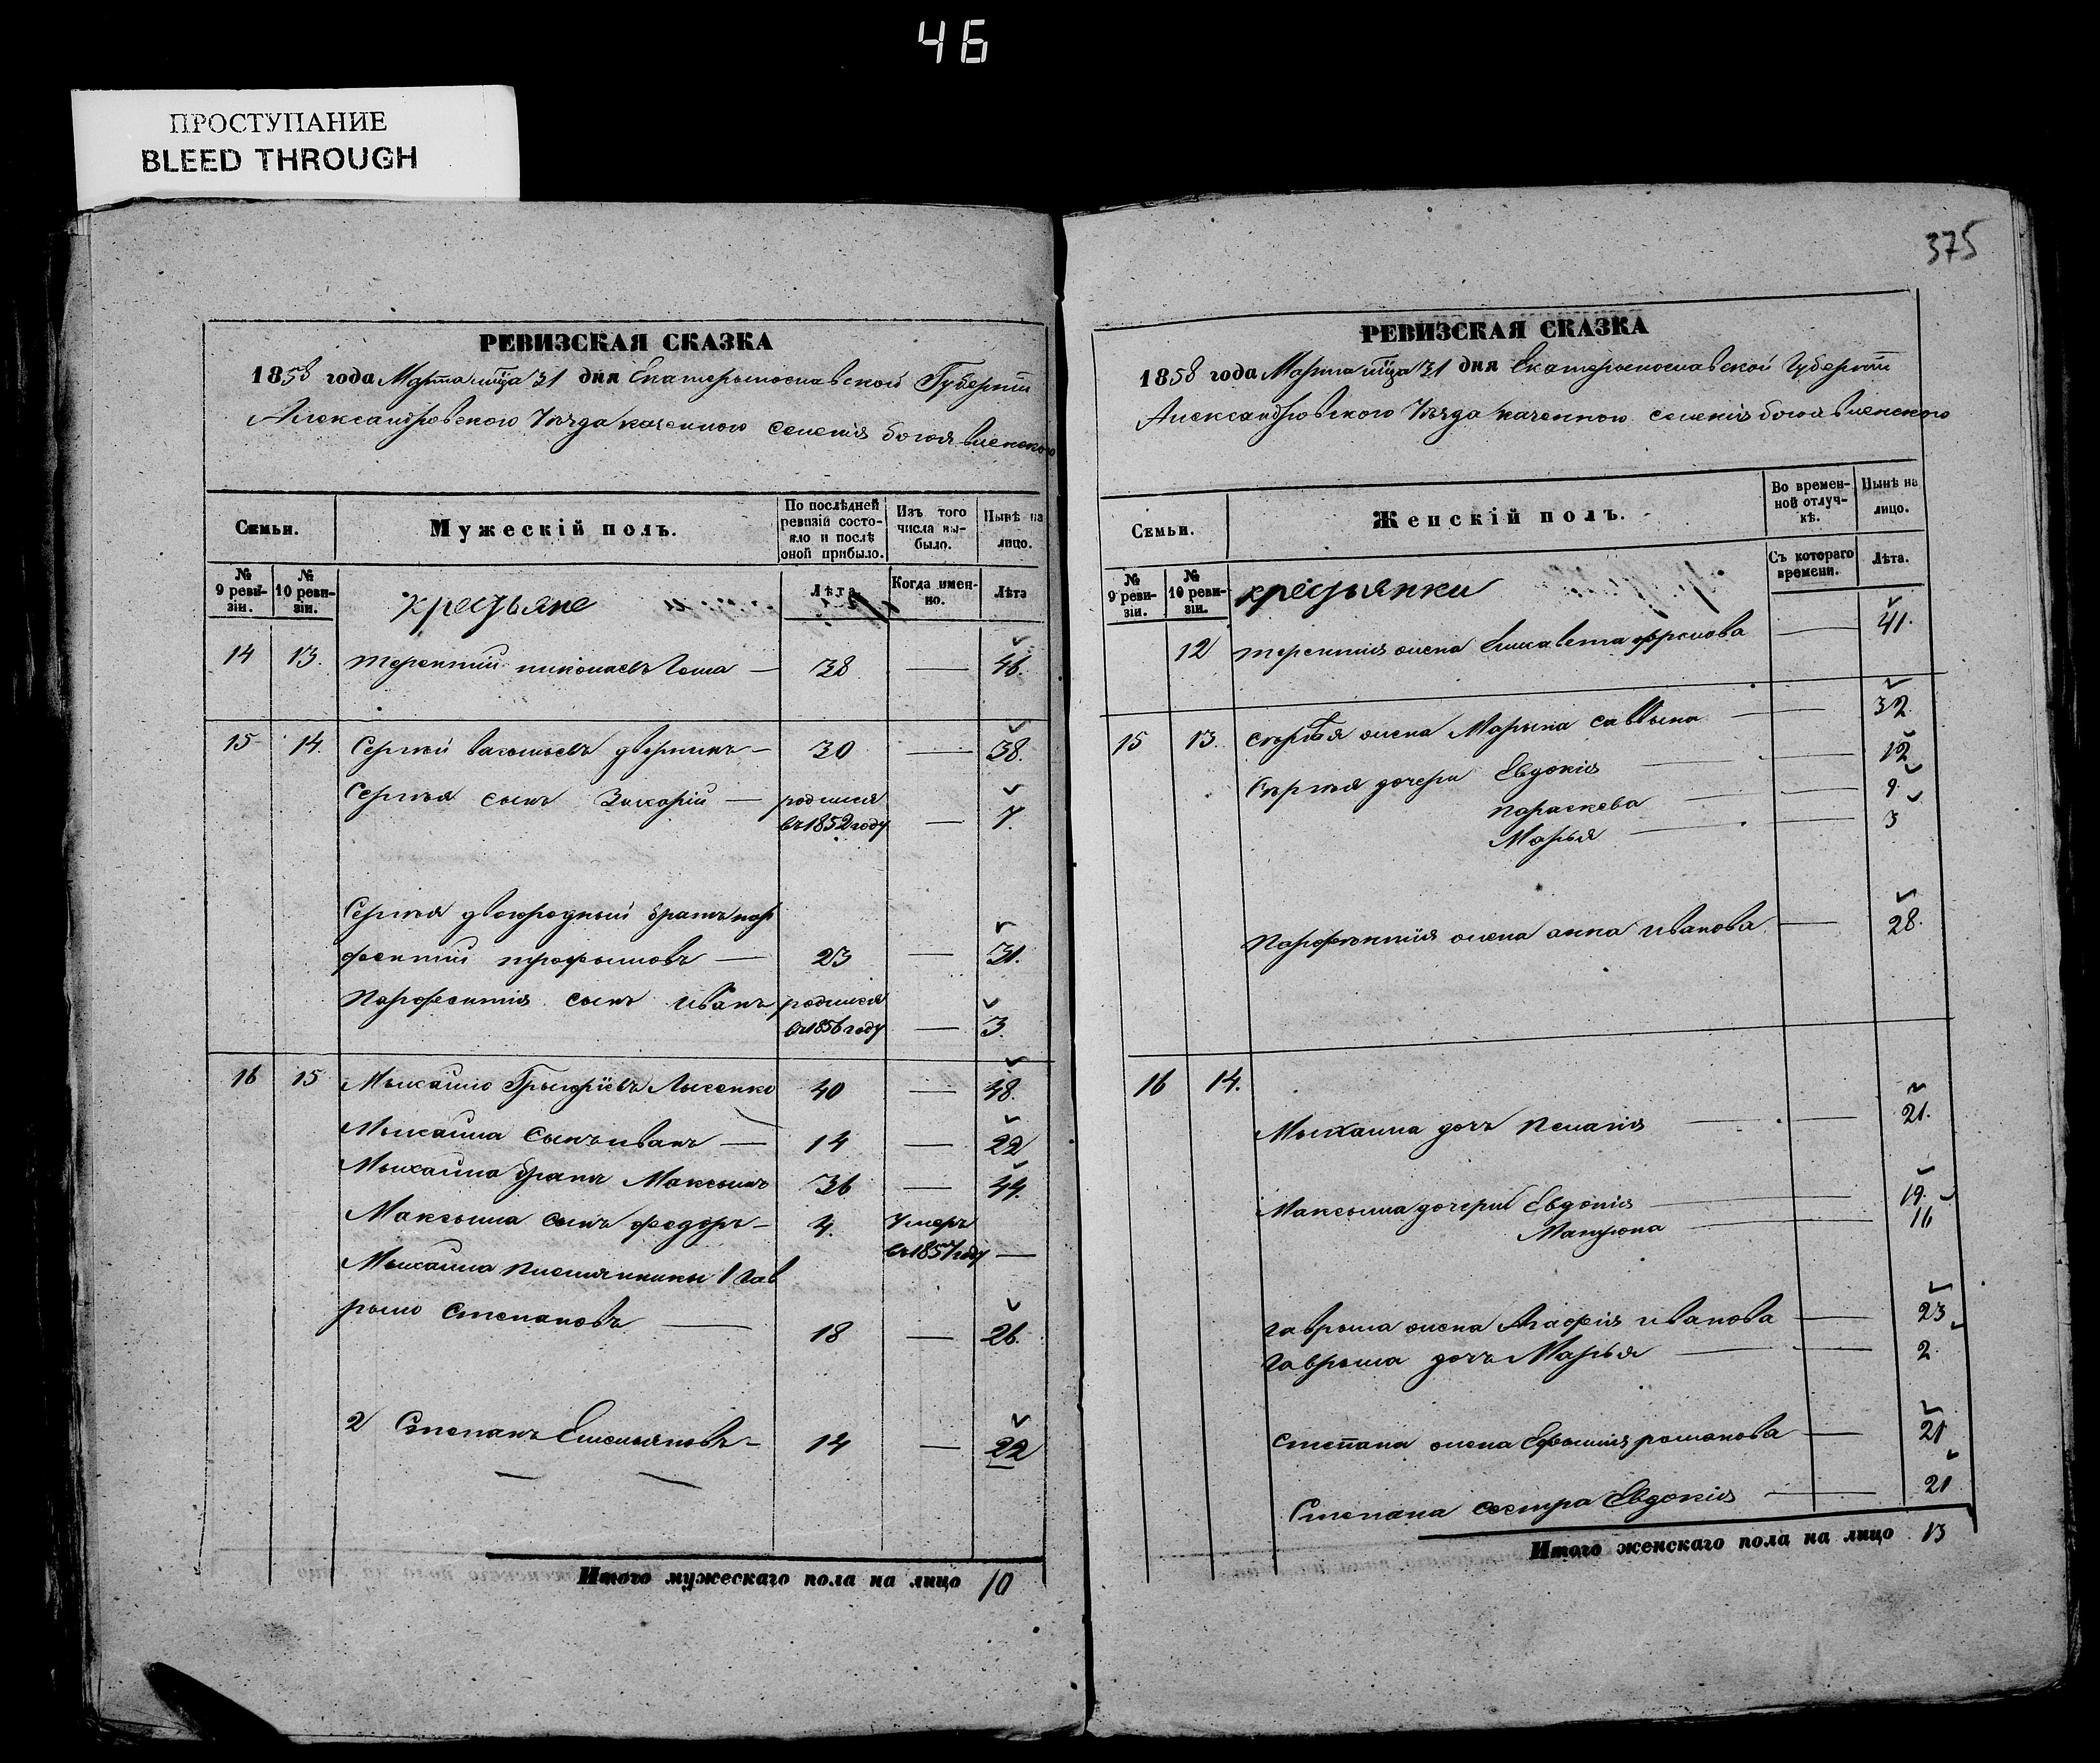 46
ПРОСТУПАНИЕ
BLEED THROUGH
РЕВИЗСКАЯ СКАЗКА
1858 года Марта мца 31 дня Екатерынославской Губерніи
Александровского Уезда казенного селенія богоявленского
Семьи.
Мужескій полъ.
По послѣдней ревизій состояло и послѣ оной прибыло.
Изъ того числа выбыло.
Нынѣ на лицо.
№ 9 ревизіи.
№ 10 ревизіи.
крестьяне
Лѣта
Когда именно.
Лѣта
14 13. терентий николаевъ — 38 — 46.
15 14. Сергѣй васыльевъ — 30 — 38.
Сергѣя сынъ Захарій — родился
въ 1852 году — 7.
Сергѣя двоюродный братъ пар
фентий трофымовъ — 23 — 31.
Парфентия сынъ иванъ родился
въ 1856 году — 3.
16 15 Мыхайло Грыгоріевъ Лысенко 40 — 48.
Мыхайла сынъ иванъ — 14 — 22
Мыхайла братъ Максымъ 36 — 44.
Максыма сынъ федоръ — 4. Умеръ
въ 1857 году —
Мыхайла племянныкы 1 гав
рыло Степановъ — 18 — 26.
2 Степанъ Емельяновъ — 14 — 22
Итого мужескаго пола на лицо 10
375
РЕВИЗСКАЯ СКАЗКА
1858 года Марта мца 31 дня Екатерынославской Губерніи
Александровского Уезда казенного селенія богоявленского
Семьи.
Женскій полъ.
Во временной отлучкѣ.
Нынѣ на лицо.
№ 9 ревизіи.
№ 10 ревизіи.
крестьянки
Съ котораго времени.
Лѣта.
12 терентия жена Елисавета — 41.
15 13. сергѣя жена Марына саввына — 32
Сергѣя дочери Евдокия — 12
параскева — 9
Марья — 3
Парфентия жена анна иванова — 28.
16 14.
Мыхайла дочъ Пелагия — 21.
Максыма дочери Евдокия — 19.
Матрона — 16
гаврыла жена Агафия иванова — 23
гаврыла дочъ Марья — 2
степана жена Ефымия романова — 21
Степана сестра Евдокия — 21
Итого женскаго пола на лицо 13